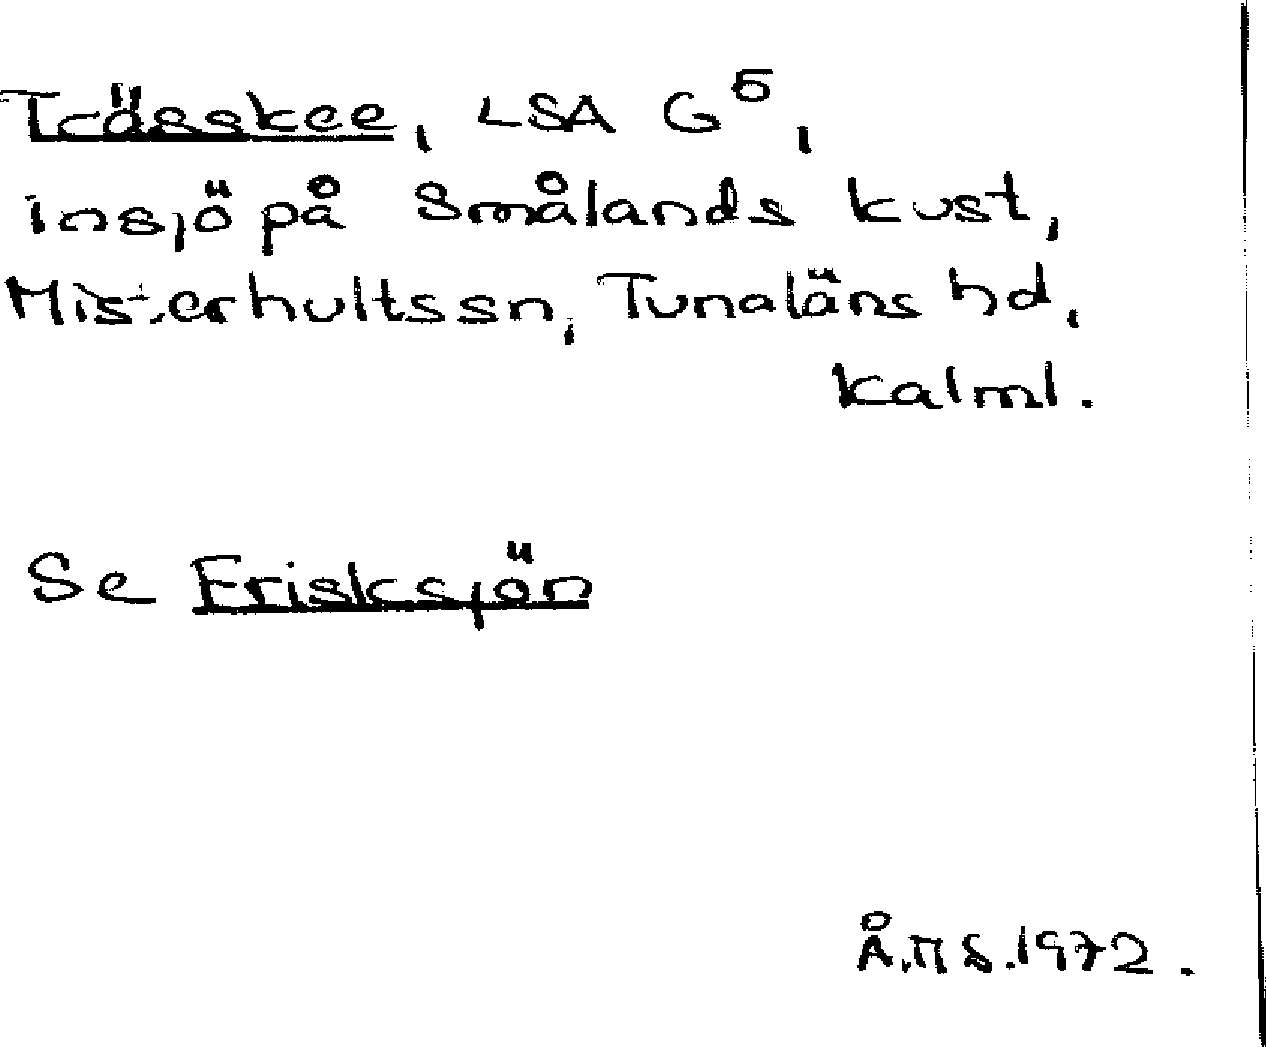 Trässkee, LSA G⁵,
insjö på Smålands kust,
Misterhultssn, Tunaläns hd,
Kalml.
Se Frisksjön
Å.M S. 1972.